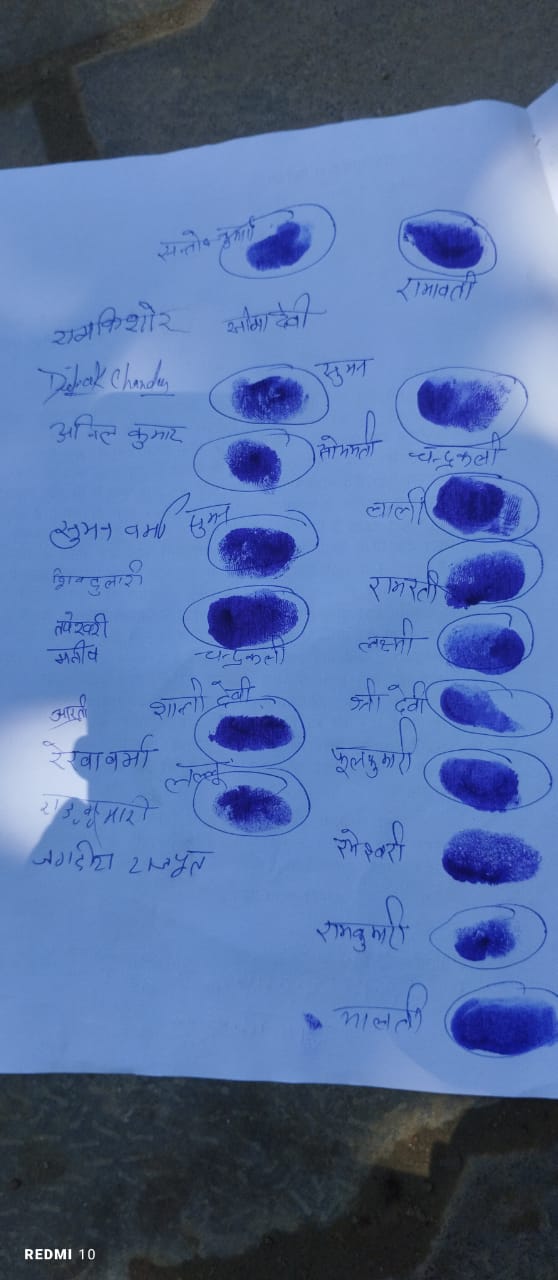 सन्तोष कुमार
रामावती
रामकिशोर
सोमा देवी
Dipak Chandra
सुमन
अनिल कुमार
सोममती
चन्द्रकली
सुमन वर्मा
सुमन
लाली
शिवदुलारी
रामरती
तपेश्वरी
लक्ष्मी
चन्द्रकली
शान्ती देवी
आरती
श्री देवी
रेखा वर्मा
लल्लू
फूलकुमारी
राजकुमारी
जगदीश राजपूत
रामकुमारी
मालती
REDMI 10